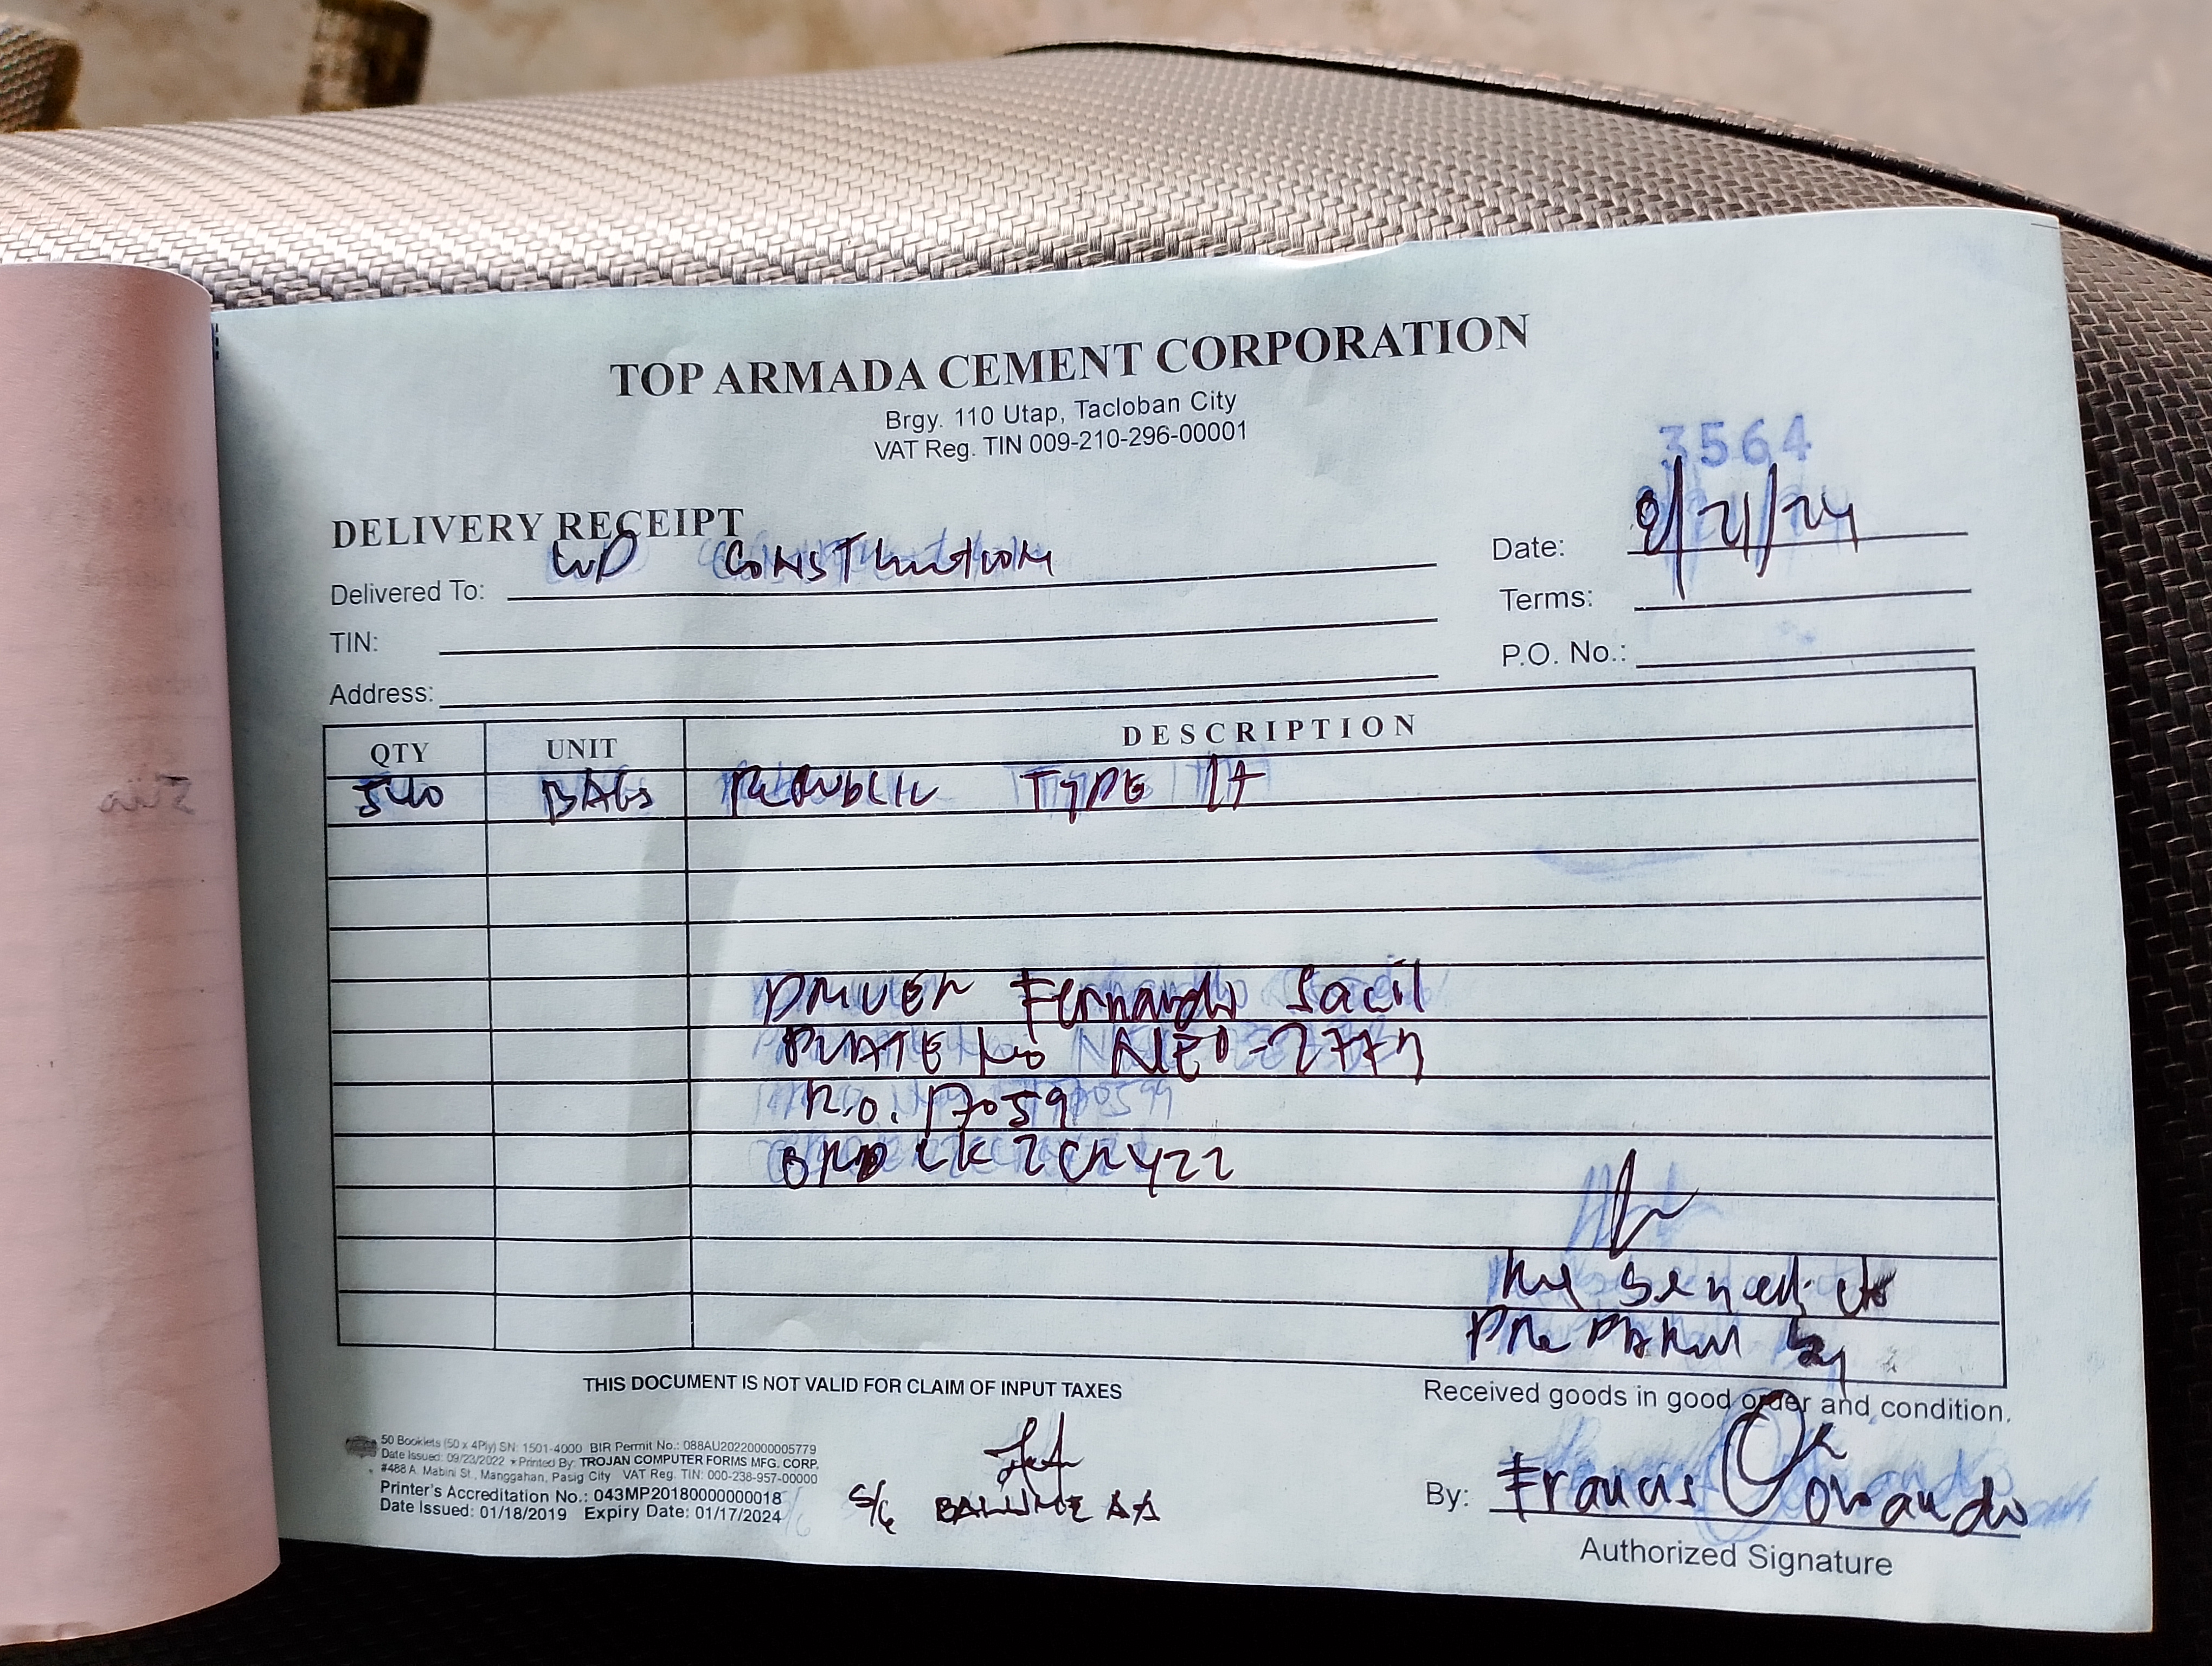 TOP ARMADA CEMENT CORPORATION
Brgy. 110 Utap, Tacloban City
VAT Reg. TIN 009-210-296-00001
3564
DELIVERY RECEIPT
Date: 8/21/24
Delivered To: WD CONSTRUCTION
Terms:
TIN:
P.O. No.:
Address:
QTY UNIT DESCRIPTION
540 BAGS REPUBLIC TYPE 1T
DRIVER Fernando Sacil
PLATE No
R.O. 17059
Prepared by
THIS DOCUMENT IS NOT VALID FOR CLAIM OF INPUT TAXES
Received goods in good order and condition.
50 Booklets (50 x 4Ply) SN: 1501-4000 BIR Permit No.: 088AU20220000005779
Date Issued: 09/23/2022 * Printed By: TROJAN COMPUTER FORMS MFG. CORP.
#488 A. Mabini St., Manggahan, Pasig City VAT Reg. TIN: 000-238-957-00000
Printer's Accreditation No.: 043MP20180000000018
Date Issued: 01/18/2019 Expiry Date: 01/17/2024
S/G
By: Francis
Authorized Signature